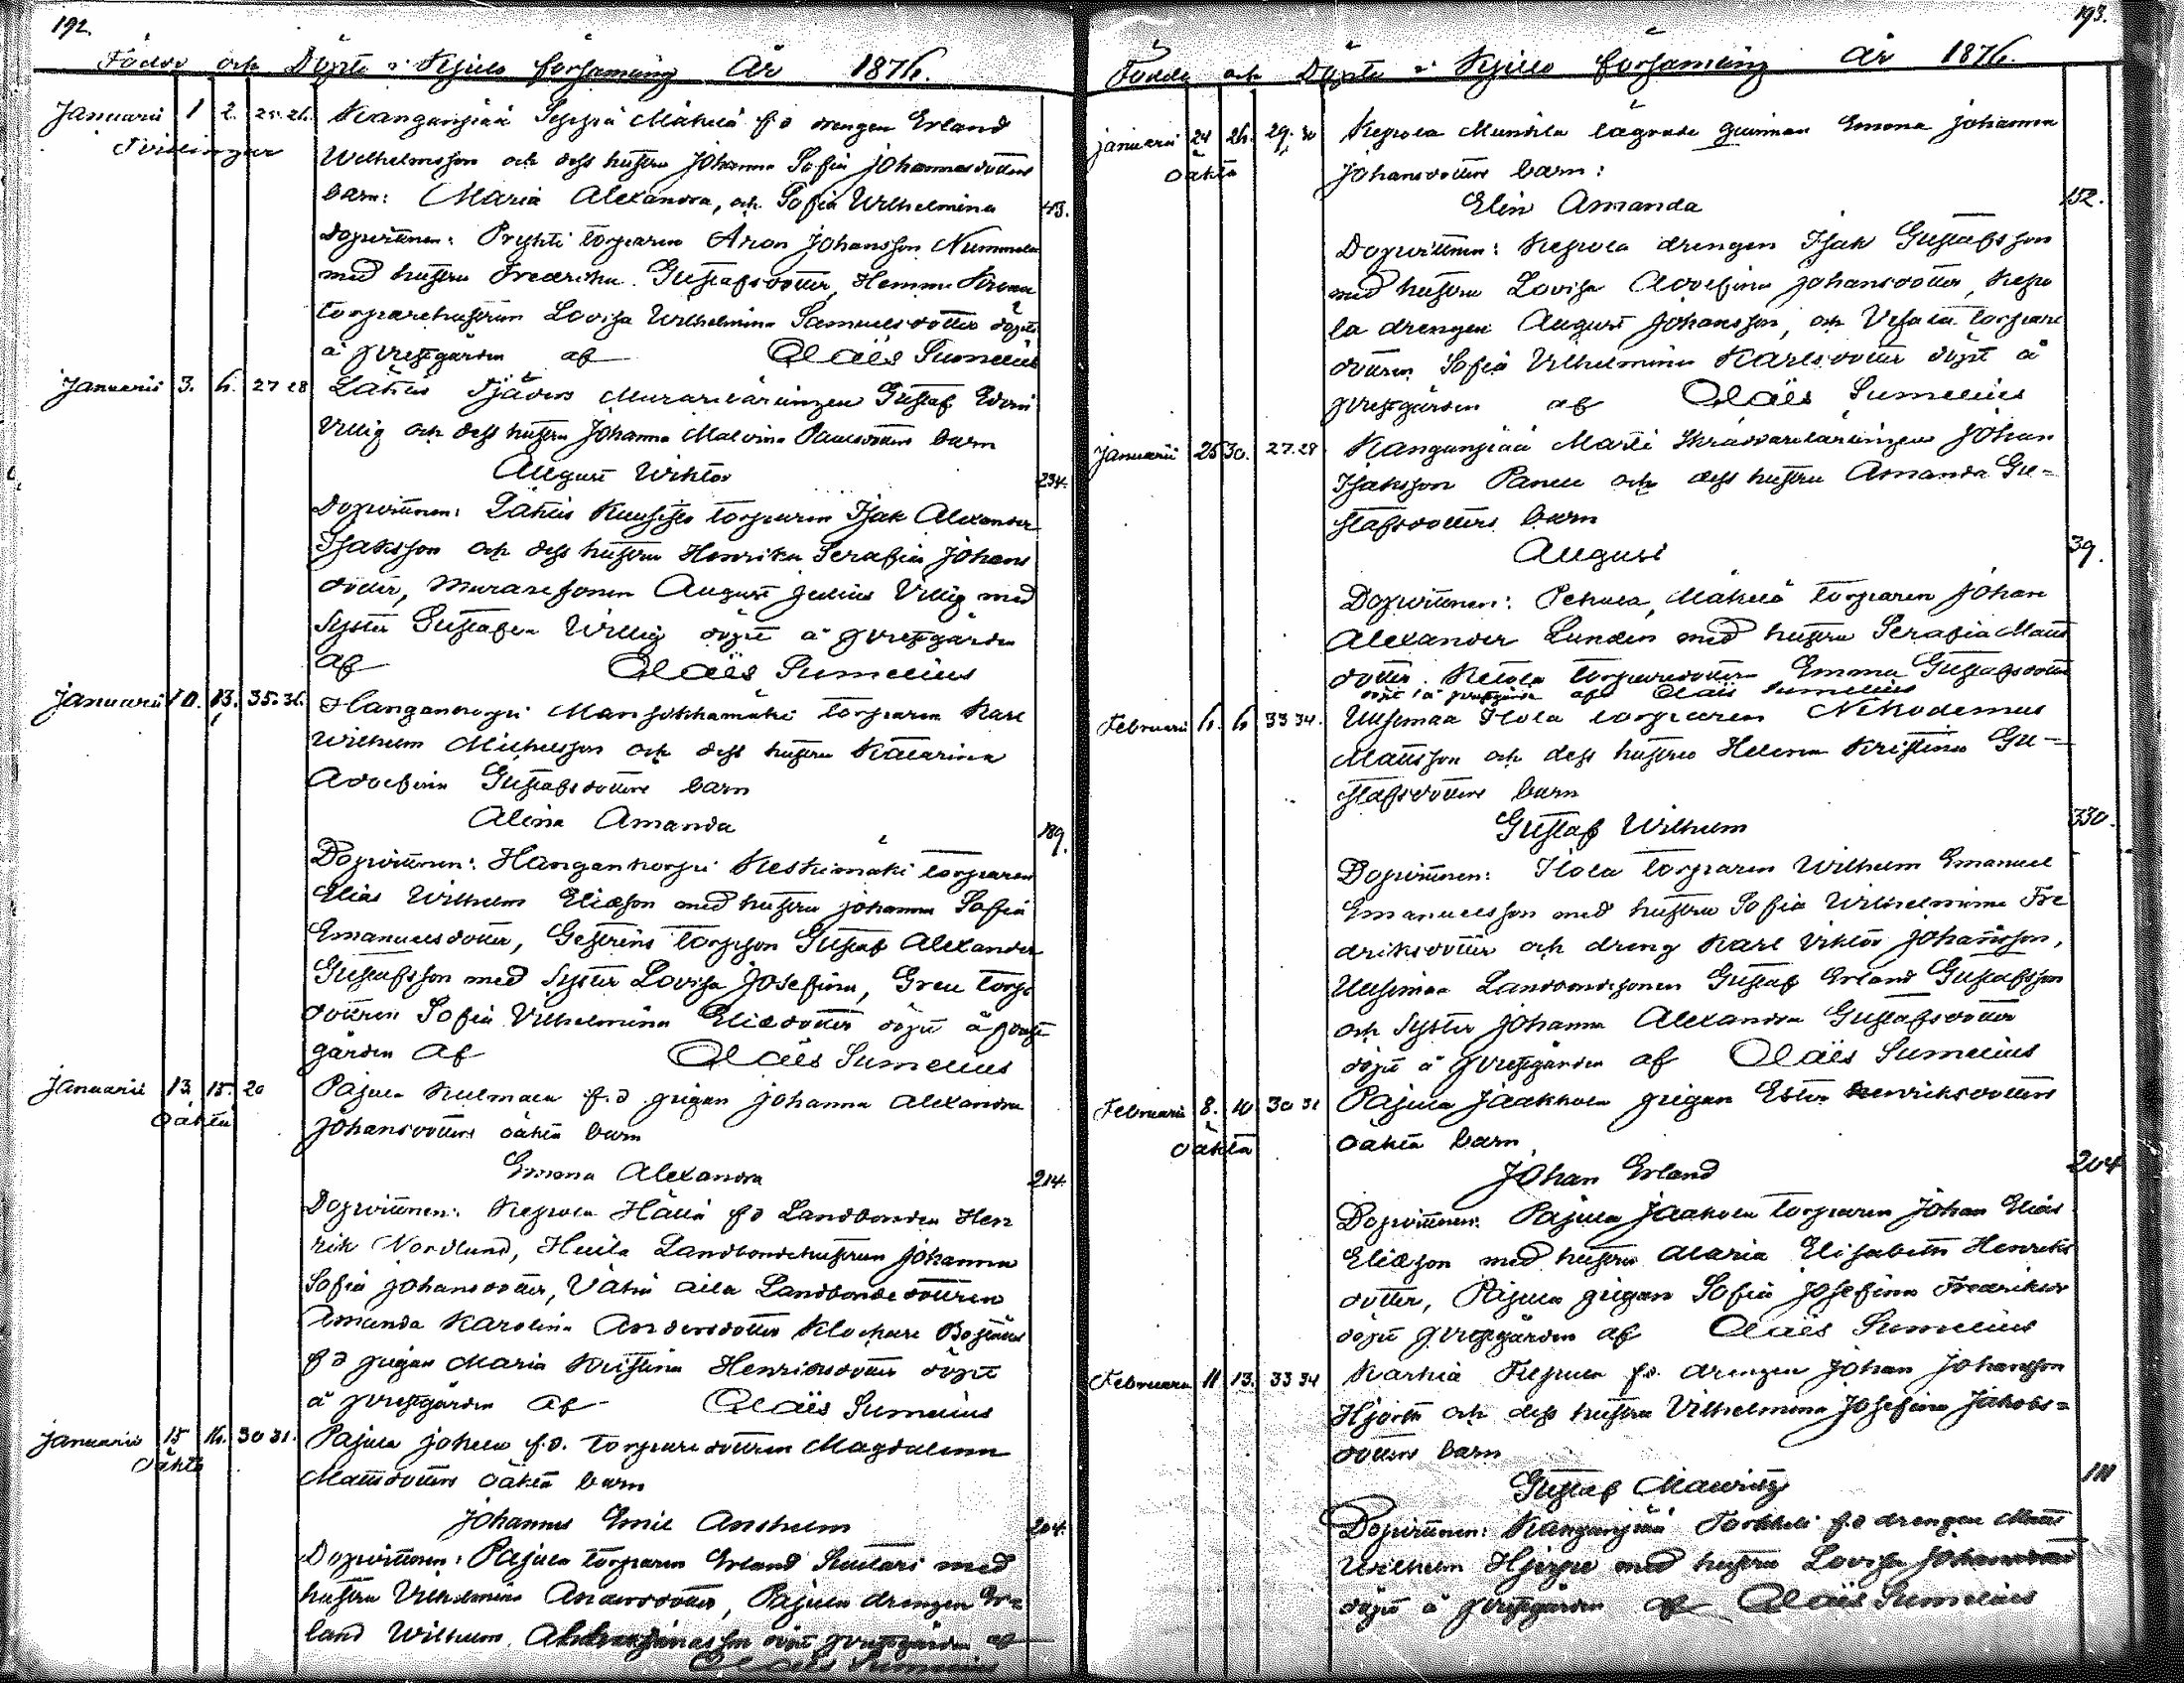 192.
Födde och Döpte i Kjulo församling År 1876.
Januarii 1 2. 25. 26. Kanganpää Seppä Mäkilä f.d drengen Erland
Tvillingar Wilhelmsson och dess hustru Johanna Sofia Johannesdotters
barn: Maria Alexandra, och Sofia Wilhelmina 43.
Dopvittnen: torparen Aron Johansson Nummela
med hustru Fredrika Gustafsdotter,
torparehustrun Lovisa Wilhelmina Samuelsdotter döpte
å prestgården af Claës Sumelius
Januarii 3. 6. 27 28 Lähteis Murarelärlingen Gustaf Edvin
Villig och dess hustru Johanna Malvina Paulsdotters barn
August Wiktor 234.
Dopvittnen: Lähteis torparen Isak Alexander
Isaksson och dess hustru Henrika Serafia Johans
dotter, Muraresonen August Julius Villig med
Syster Gustafva Willig döpt å prestgården
af Claës Sumelius
Januarii 10. 13. 35. 36. Hangankorpi torparen Karl
Wilhelm Michelsson och dess hustru Katarina
Adolfina Gustafsdotters barn
Alina Amanda 189.
Dopvittnen: Hangankorpi Keskimäki torparen
Elias Wilhelm Eliæson med hustru Johanna Sofia
Emanuelsdotter, torpson Gustaf Alexander
Gustafsson med Syster Lovisa Josefina, torp
dottren Sofia Vilhelmina Eliædotter döpt å prest
gården af Claës Sumelius
Januarii 13 15. 20 Pajula f.d. pigan Johanna Alexandra
oäkta Johansdotters oäkta barn
Emma Alexandra 214.
Dopvittnen: Kepola f d Landbonden Hen
rik Nordlund, Landbondehustrun Johanna
Sofia Johansdotter, Landbonde dottren
Amanda Karolina Andersdotter
f d pigan Maria Kristina Henriksdotter döpt
å prestgården af Claës Sumelius
Januarii 15 16. 30 31. Pajula f.d. torpare dottren Magdalena
oäkta Mattsdotters oäkta barn
Johannes Emil Anshelm 204.
Dopvittnen: Pajula torparen Erland med
hustru Vilhelmina Andersdotter, Pajula drengen Er=
land Wilhelm döpt prestgården af
Claës Sumelius
193.
Födde och Döpte i Kjulo församling År 1876.
Januarii 24 26. 29. 30 Kepola Mundila lägrade qvinnan Emma Johanna
oäkta Johansdotters barn:
Elin Amanda 152.
Dopvittnen: Kepola drengen Isak Gustafsson
med hustru Lovisa Adolfina Johansdotter, Kepo
la drengen August Johansson, och torpare
dottren Sofia Vilhelmina Karlsdotter döpt å
prestgården af Claës Sumelius
Januarii 25 30. 27. 28. Kanganpää Martti Skräddarelärlingen Johan
Isaksson och dess hustru Amanda Gu=
stafsdotters barn
August 39.
Dopvittnen: Mäkilä torparen Johan
Alexander Lunden med hustru Serafia Matts
dotter. torparedotter Emma Gustafsdotter
döpt å prestgården af Claës Sumelius
Februarii 6. 6 33 34. Uusimaa Ilola torparen Nikodemus
Mattsson och dess hustru Helena Kristina Gu=
stafsdotters barn
Gustaf Wilhelm 330.
Dopvittnen: Ilola torparen Wilhelm Emanuel
Emanuelsson med hustru Sofia Wilhelmina Fre
driksdotter och dreng Karl Viktor Johansson,
Uusimaa Landbondesonen Gustaf Erland Gustafsson
och Syster Johanna Alexandra Gustafsdotter
döpt å prestgården af Claës Sumelius
Februarii 8. 10 30 31 Pajula Jaakkola pigan Ester Henriksdotters
oäkta oäkta barn
Johan Erland 204
Dopvittnen: Pajula Jaakola torparen Johan Elias
Eliæson med hustru Maria Elisabeth Henriks
dotter, Pajula pigan Sofia Josefina Fredriksd
döpt prestgården af Claës Sumelius
Februarii 11 13. 33 34 Karhia f.d. drengen Johan Johansson
Hjorth och dess hustru Vilhelmina Josefina Jakobs=
dotters barn
Gustaf Mauritz 111
Dopvittnen: Kanganpää f.d drengen Matts
Wilhelm Hjerpe med hustru Lovisa Johansdotter
döpt å prestgården af Claës Sumelius